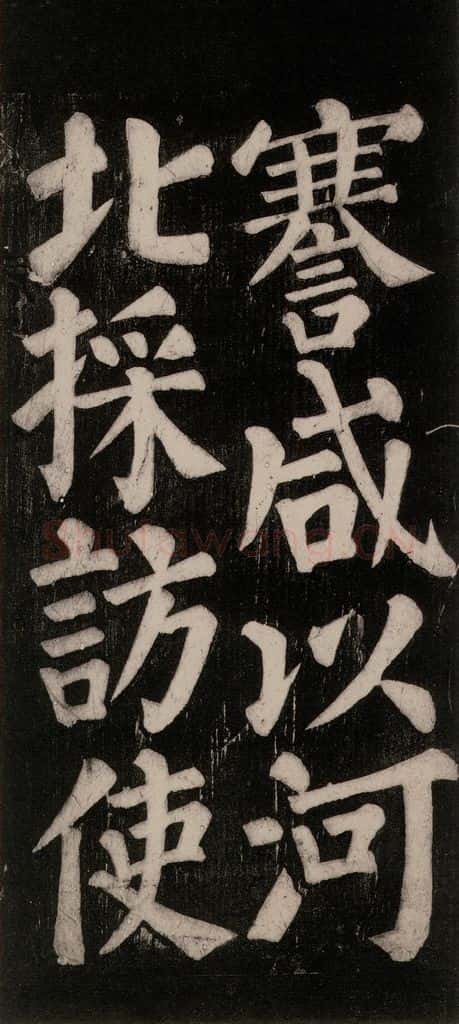 謇咸以河
北採訪使
Shufawang.CN